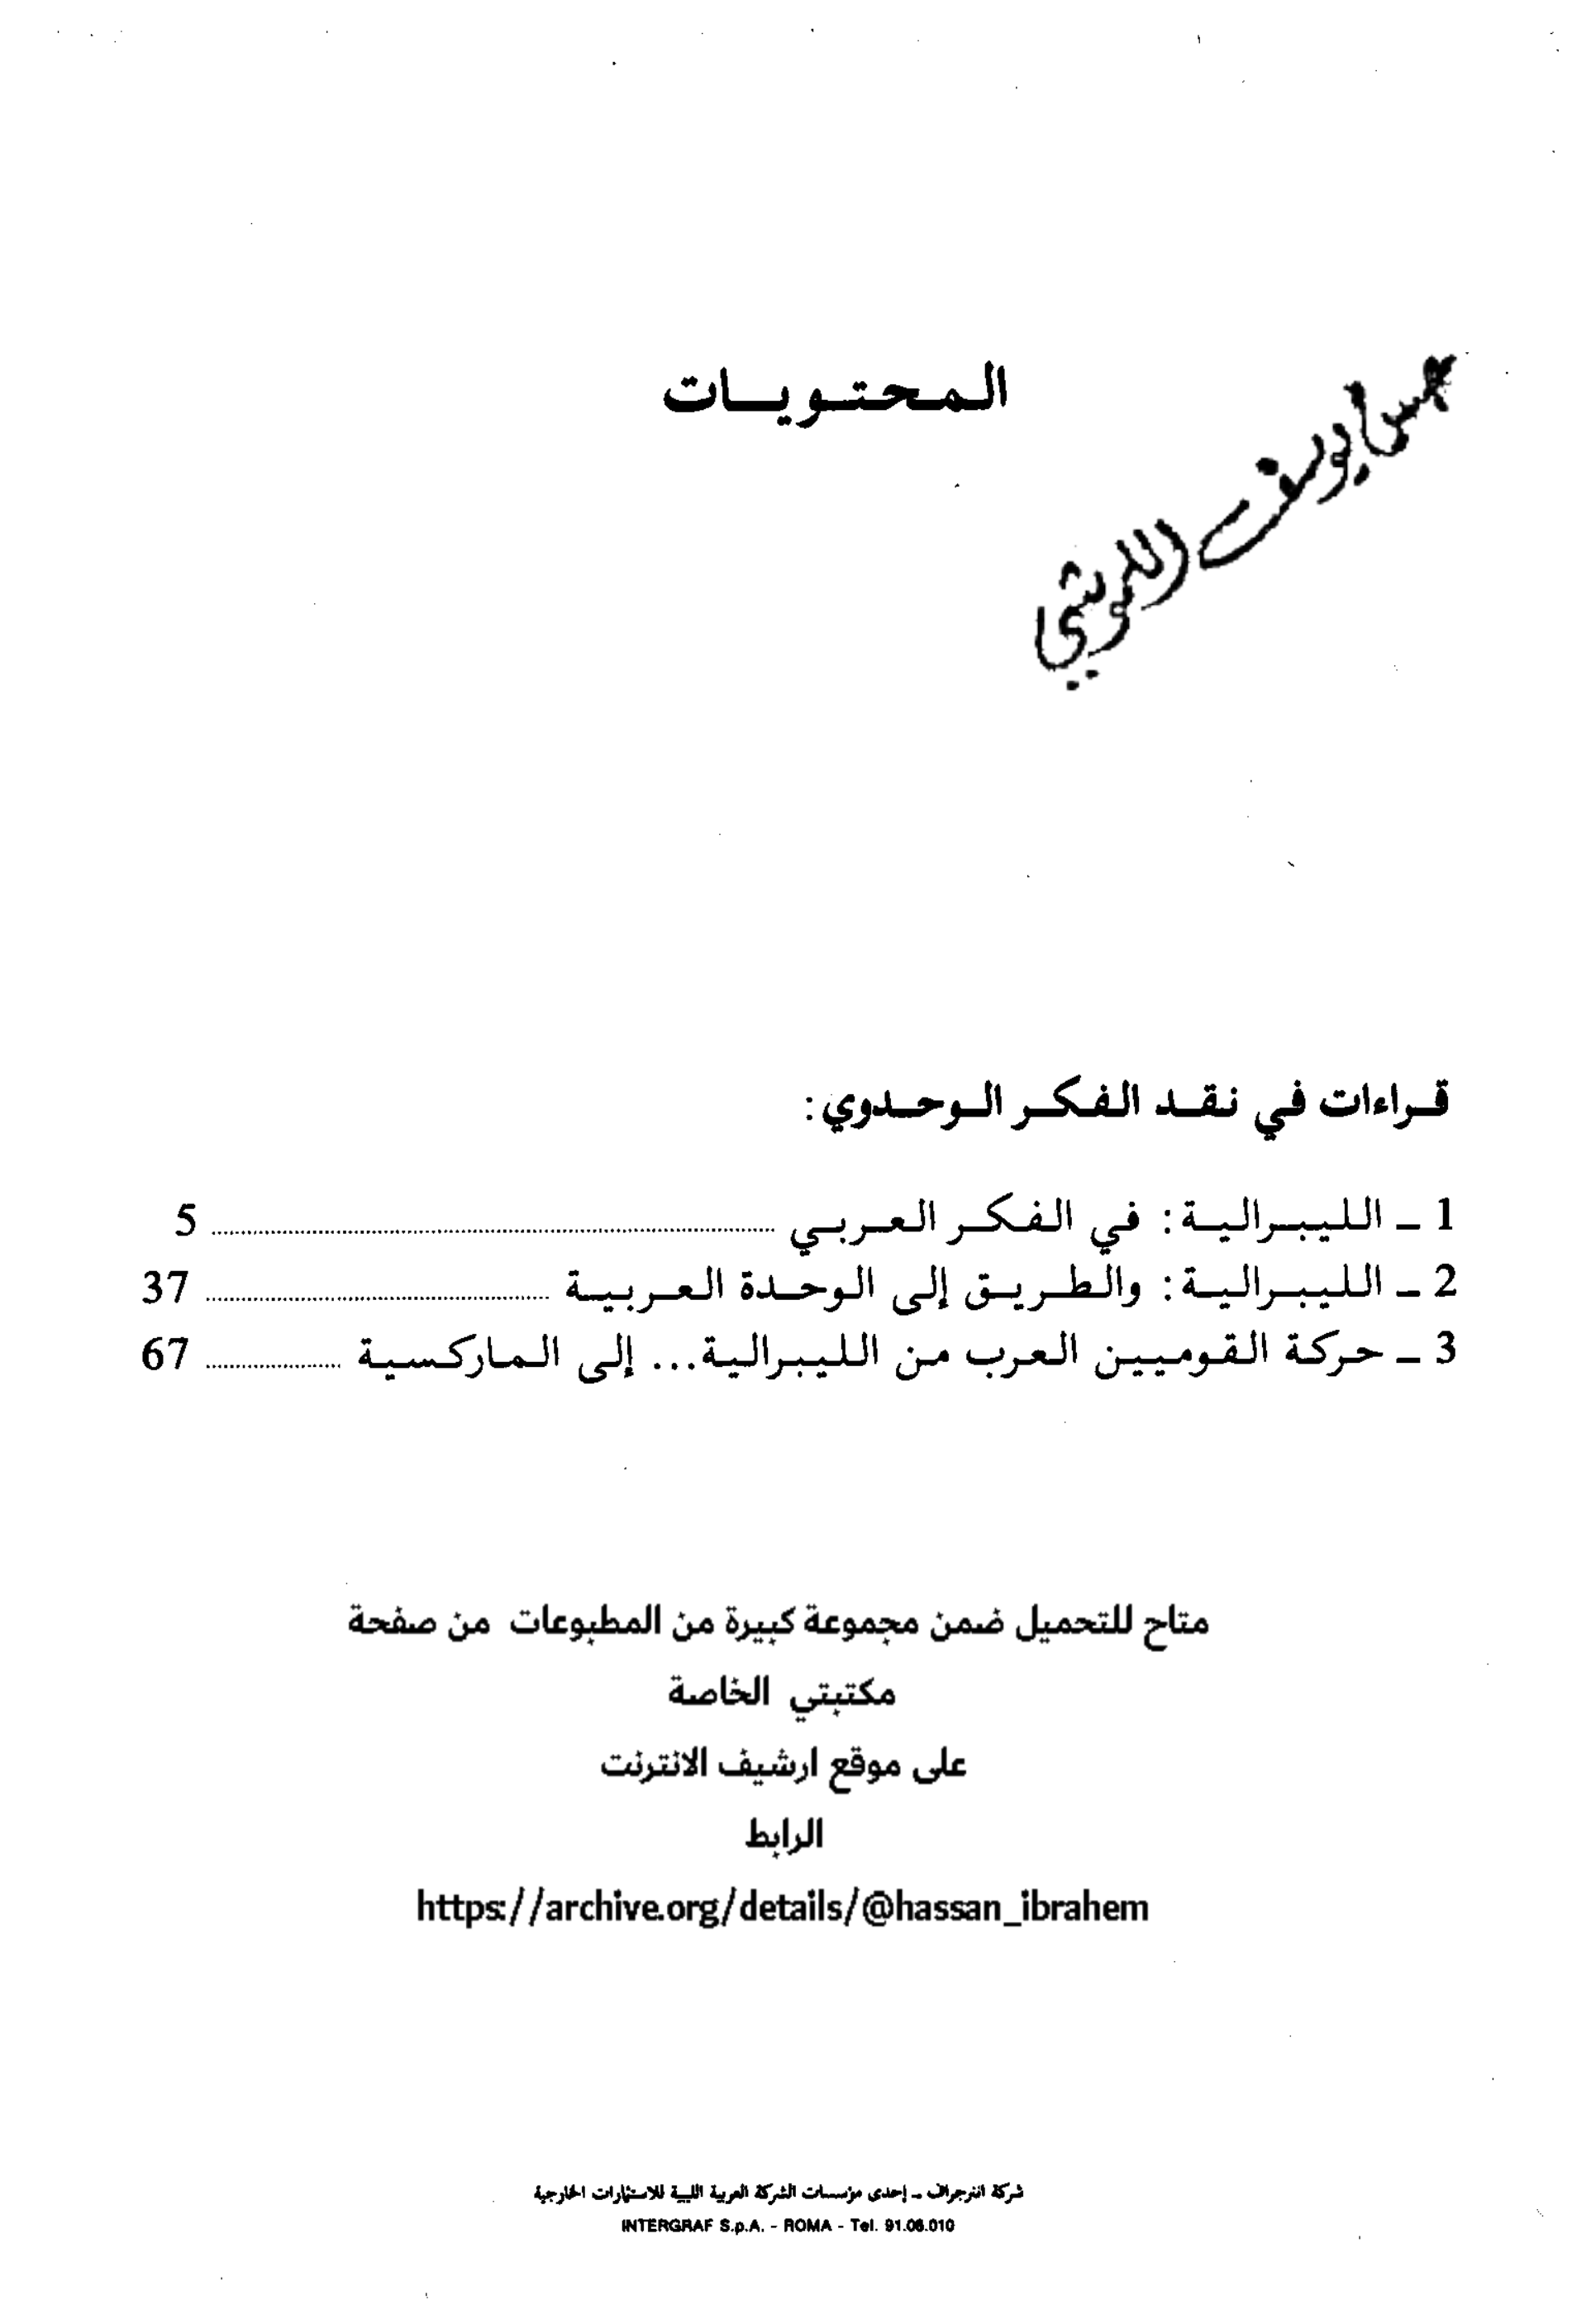 المحتويات
يوسف اللموشي
قراءات في نقد الفكر الوحدوي:
1 ـ الليبرالية: في الفكر العربي ........ 5
2 ـ الليبرالية: والطريق إلى الوحدة العربية ........ 37
3 ـ حركة القوميين العرب من الليبرالية... إلى الماركسية ........ 67
متاح للتحميل ضمن مجموعة كبيرة من المطبوعات من صفحة
مكتبتي الخاصة
على موقع ارشيف الانترنت
الرابط
https://archive.org/details/@hassan_ibrahem
شركة انترجراف ـ إحدى مؤسسات الشركة العربية الليبية للاستثمارات الخارجية
INTERGRAF S.p.A. - ROMA - Tel. 91.06.010